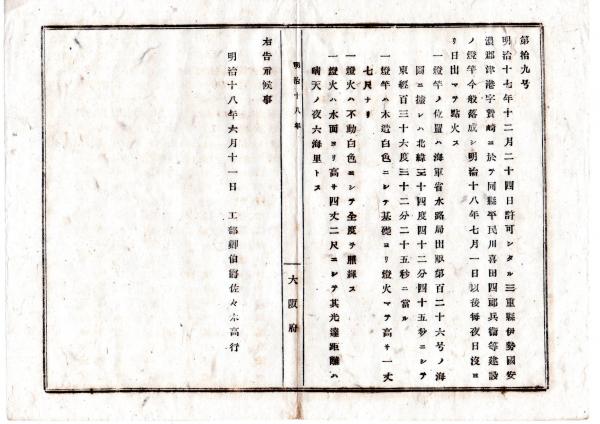 第拾九号
明治十七年十二月二十四日許可シタル三重縣伊勢國安
濃郡津港字贄崎ニ於テ同縣平民川喜田四郎兵衞等建設
ノ燈竿今般落成シ明治十八年七月一日以後毎夜日沒ヨ
リ日出マテ點火ス
一燈竿ノ位置ハ海軍省水路局出版第百二十六号ノ海
圖ニ據レハ北緯三十四度四十二分四十五秒ニシテ
東經百三十六度三十二分二十五秒ニ當ル
一燈竿ハ木造白色ニシテ基礎ヨリ燈火マテ高サ一丈
七尺ナリ
一燈火ハ不動白色ニシテ全度ヲ照輝ス
一燈火ハ水面ヨリ高サ四丈二尺ニシテ其光達距離ハ
晴天ノ夜六海里トス
明治十八年
大阪府
右告示候事
明治十八年六月十一日
工部卿伯爵佐々木高行